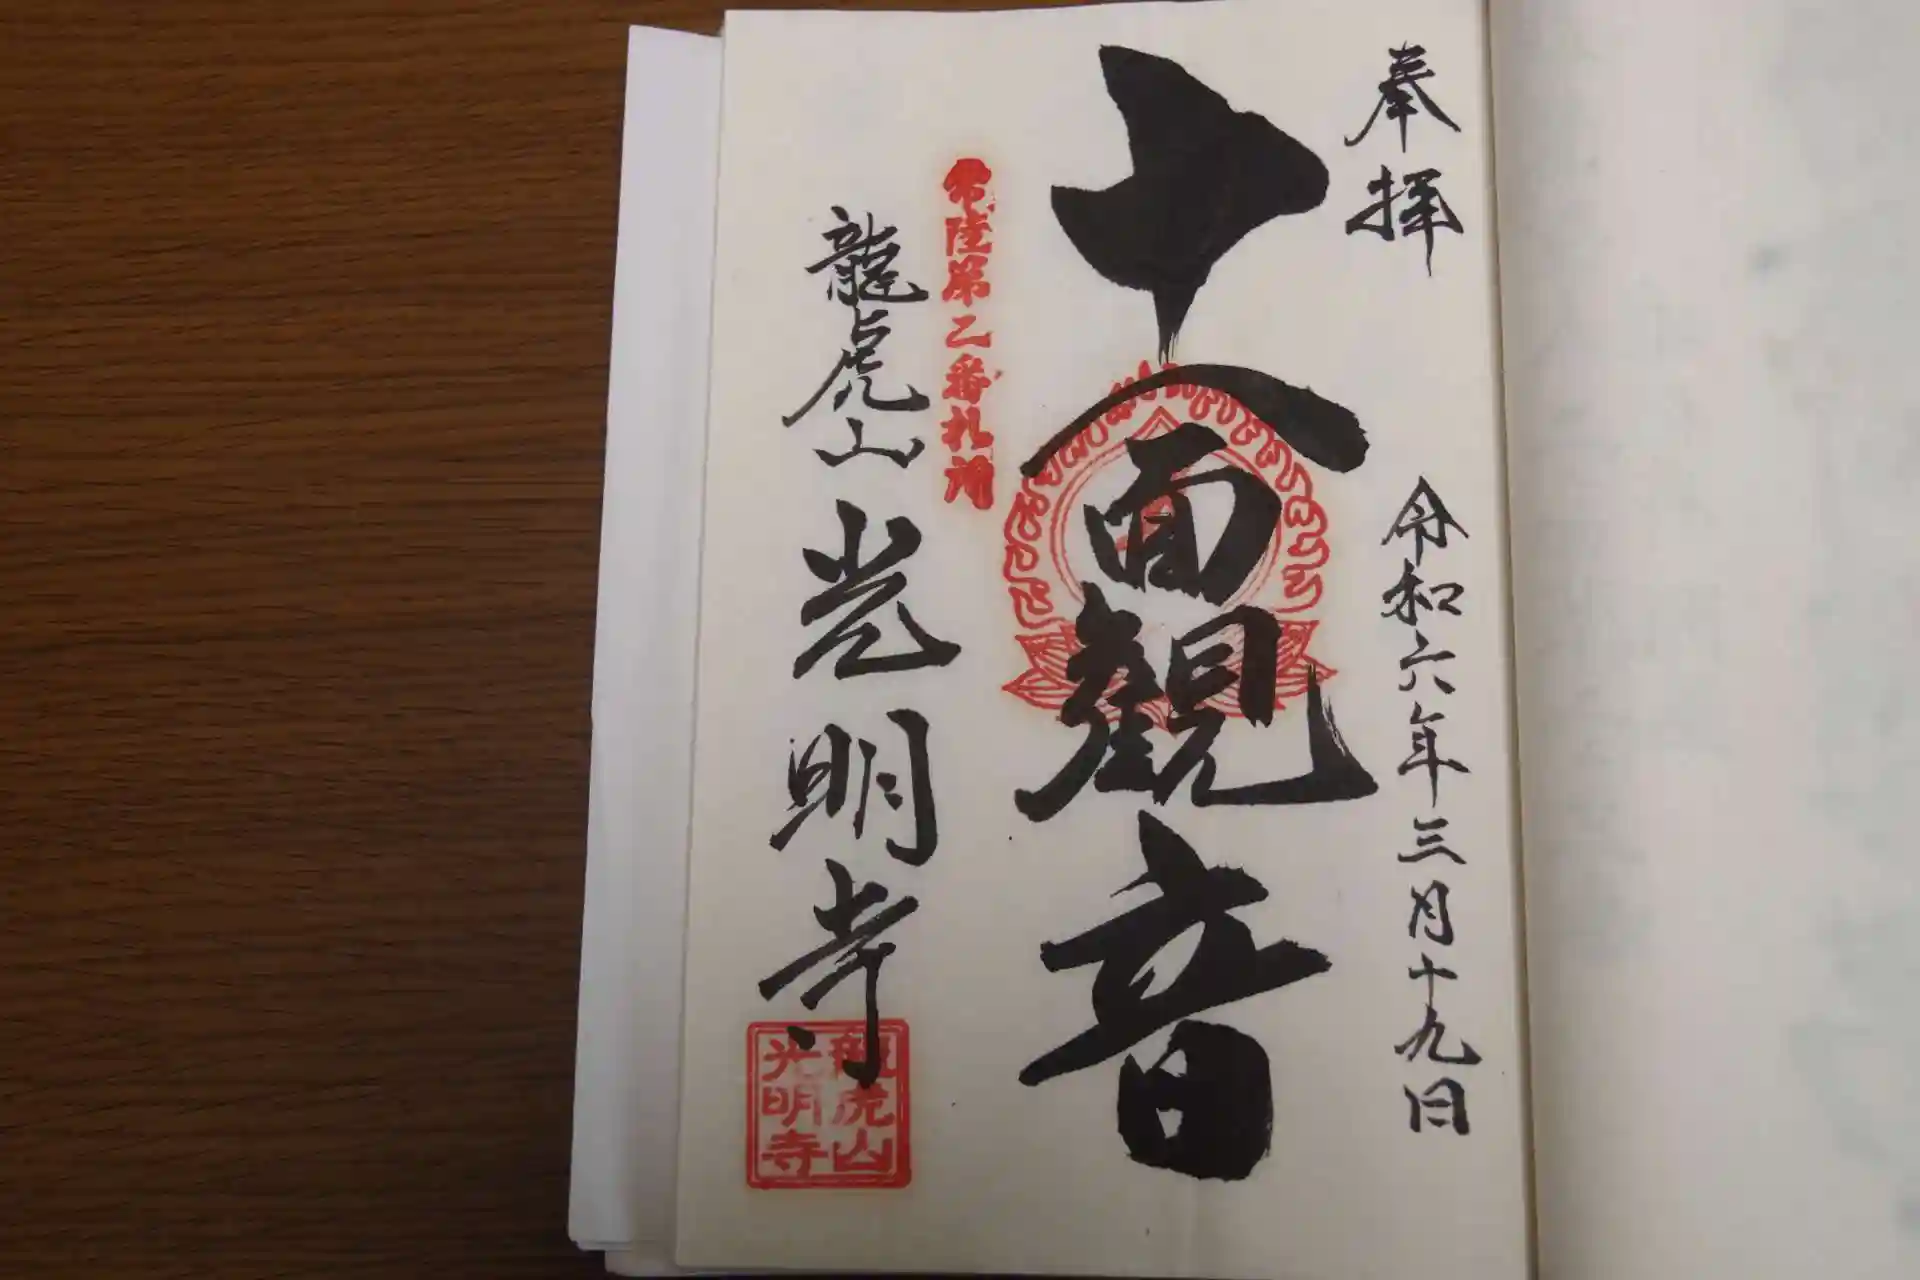 奉拝
令和六年三月十九日
十一面観音
常陸第二番札所
龍虎山光明寺
龍虎山
光明寺